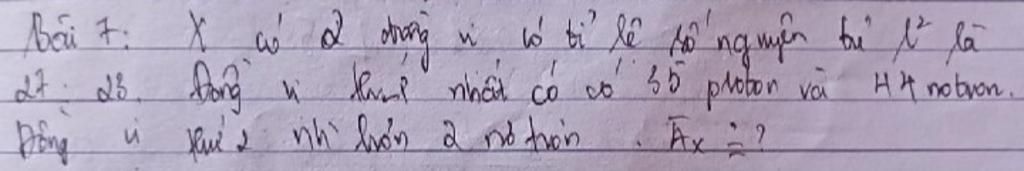 Bài 7: X có 2 đồng vị có tỉ lệ số nguyên tử l² là
27 : 23. Đồng vị thứ nhất có có 35 proton và 44 notron.
Đồng vị thứ 2 nh` hơn 2 nơ tron. Ax = ?